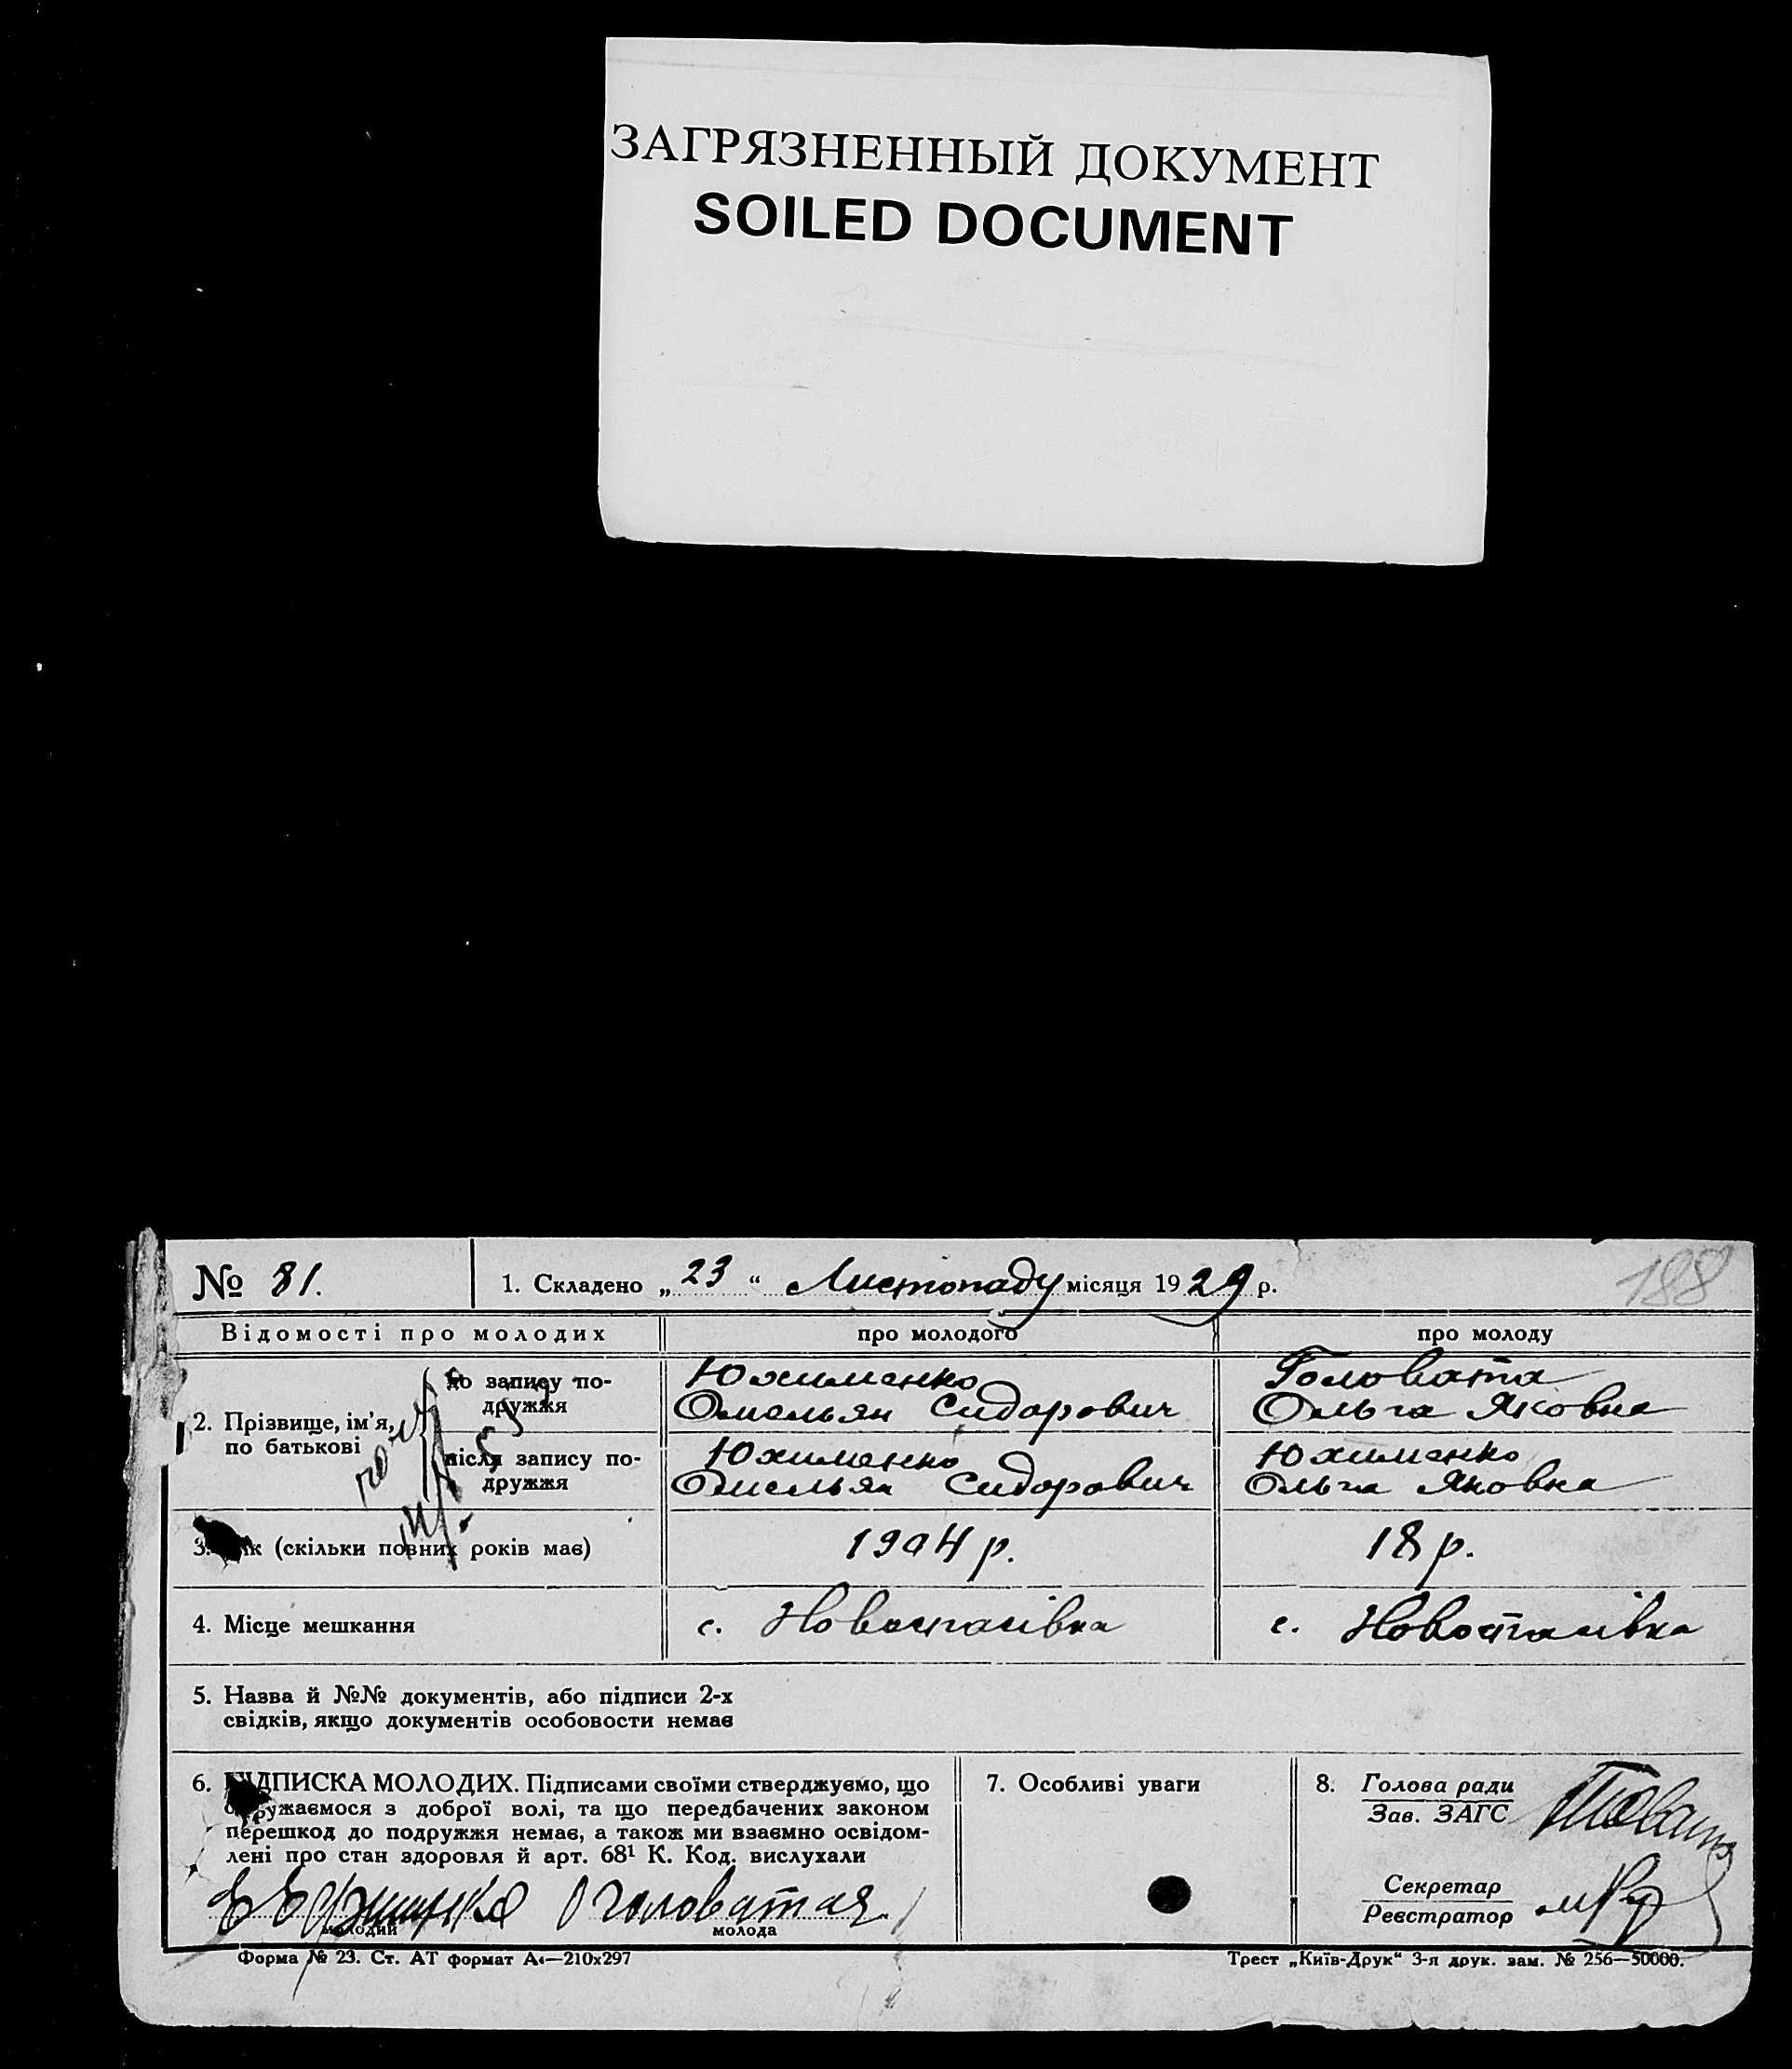 ЗАГРЯЗНЕННЫЙ ДОКУМЕНТ
SOILED DOCUMENT
№ 81.
1. Складено „23“ Листопаду місяця 1929 р.
188
Відомості про молодих
про молодого
про молоду
2. Прізвище, ім'я, по батькові
до запису по-
дружжя
Юхименко
Омельян Сидорович
Головата
Ольга Яковна
після запису по-
дружжя
Юхименко
Омельян Сидорович
Юхименко
Ольга Яковна
3. Вік (скільки повних років має)
1904 р.
18 р.
4. Місце мешкання
с. Новоспасівка
с. Новоспасівка
5. Назва й №№ документів, або підписи 2-х
свідків, якщо документів особовости немає
6. ПІДПИСКА МОЛОДИХ. Підписами своїми стверджуємо, що
одружаємося з доброї волі, та що передбачених законом
перешкод до подружжя немає, а також ми взаємно освідом-
лені про стан здоровля й арт. 68¹ К. Код. вислухали
Головатая
молодий
молода
7. Особливі уваги
8. Голова ради
Зав. ЗАГС
Секретар
Реєстратор
Форма № 23. Ст. АТ формат А4—210х297
Трест „Київ-Друк“ 3-я друк. зам. № 256—50000.